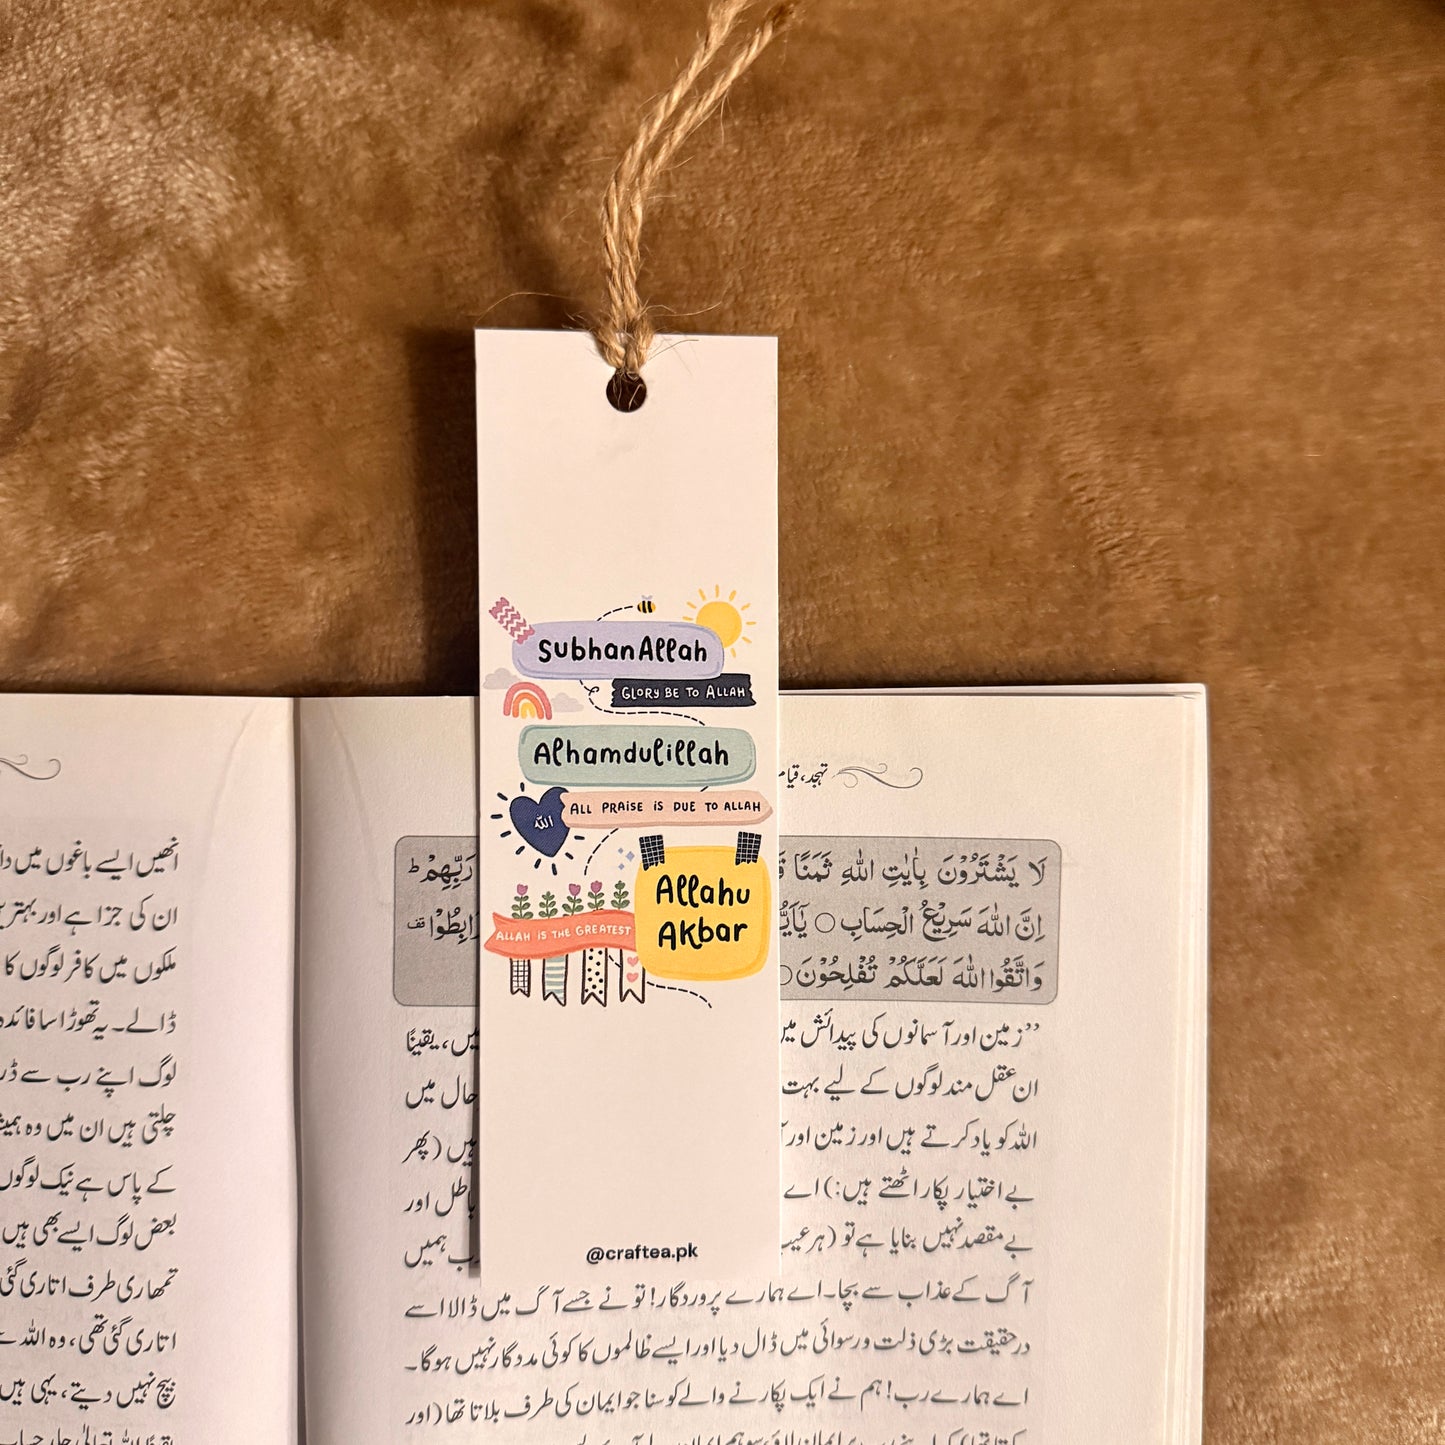 SubhanAllah
GLORY BE TO ALLAH
Alhamdulillah
الله
ALL PRAISE IS DUE TO ALLAH
Allahu
Akbar
ALLAH IS THE GREATEST
@craftea.pk
تہجد، قیام
لَا يَشْتَرُوْنَ بِاٰيٰتِ اللّٰهِ ثَمَنًا
رَبِّهِمْ ؕ
اِنَّ اللّٰهَ سَرِيْعُ الْحِسَابِ ○
وَاتَّقُوا اللّٰهَ لَعَلَّكُمْ تُفْلِحُوْنَ ○
’’زمین اور آسمانوں کی پیدائش میں
میں، یقینًا
ان عقل مند لوگوں کے لیے بہت
حال میں
اللہ کو یاد کرتے ہیں اور زمین اور
ہیں (پھر
بے اختیار پکار اٹھتے ہیں:) اے
باطل اور
بے مقصد نہیں بنایا ہے تو (ہر عیب
ہمیں
آگ کے عذاب سے بچا۔ اے ہمارے پروردگار! تو نے جسے آگ میں ڈالا اسے
درحقیقت بڑی ذلت و رسوائی میں ڈال دیا اور ایسے ظالموں کا کوئی مددگار نہیں ہوگا۔
اے ہمارے رب! ہم نے ایک پکارنے والے کو سنا جو ایمان کی طرف بلاتا تھا (اور
انھیں ایسے باغوں میں
ان کی جزا ہے اور بہتر
ملکوں میں کافر لوگوں کا
ڈالے۔ یہ تھوڑا سا فائدہ
لوگ اپنے رب سے
چلتی ہیں ان میں وہ
کے پاس ہے نیک لوگوں
بعض لوگ ایسے بھی ہیں
تمھاری طرف اتاری گئی
اتاری گئی تھی، وہ اللہ
بیچ نہیں دیتے، یہی ہیں